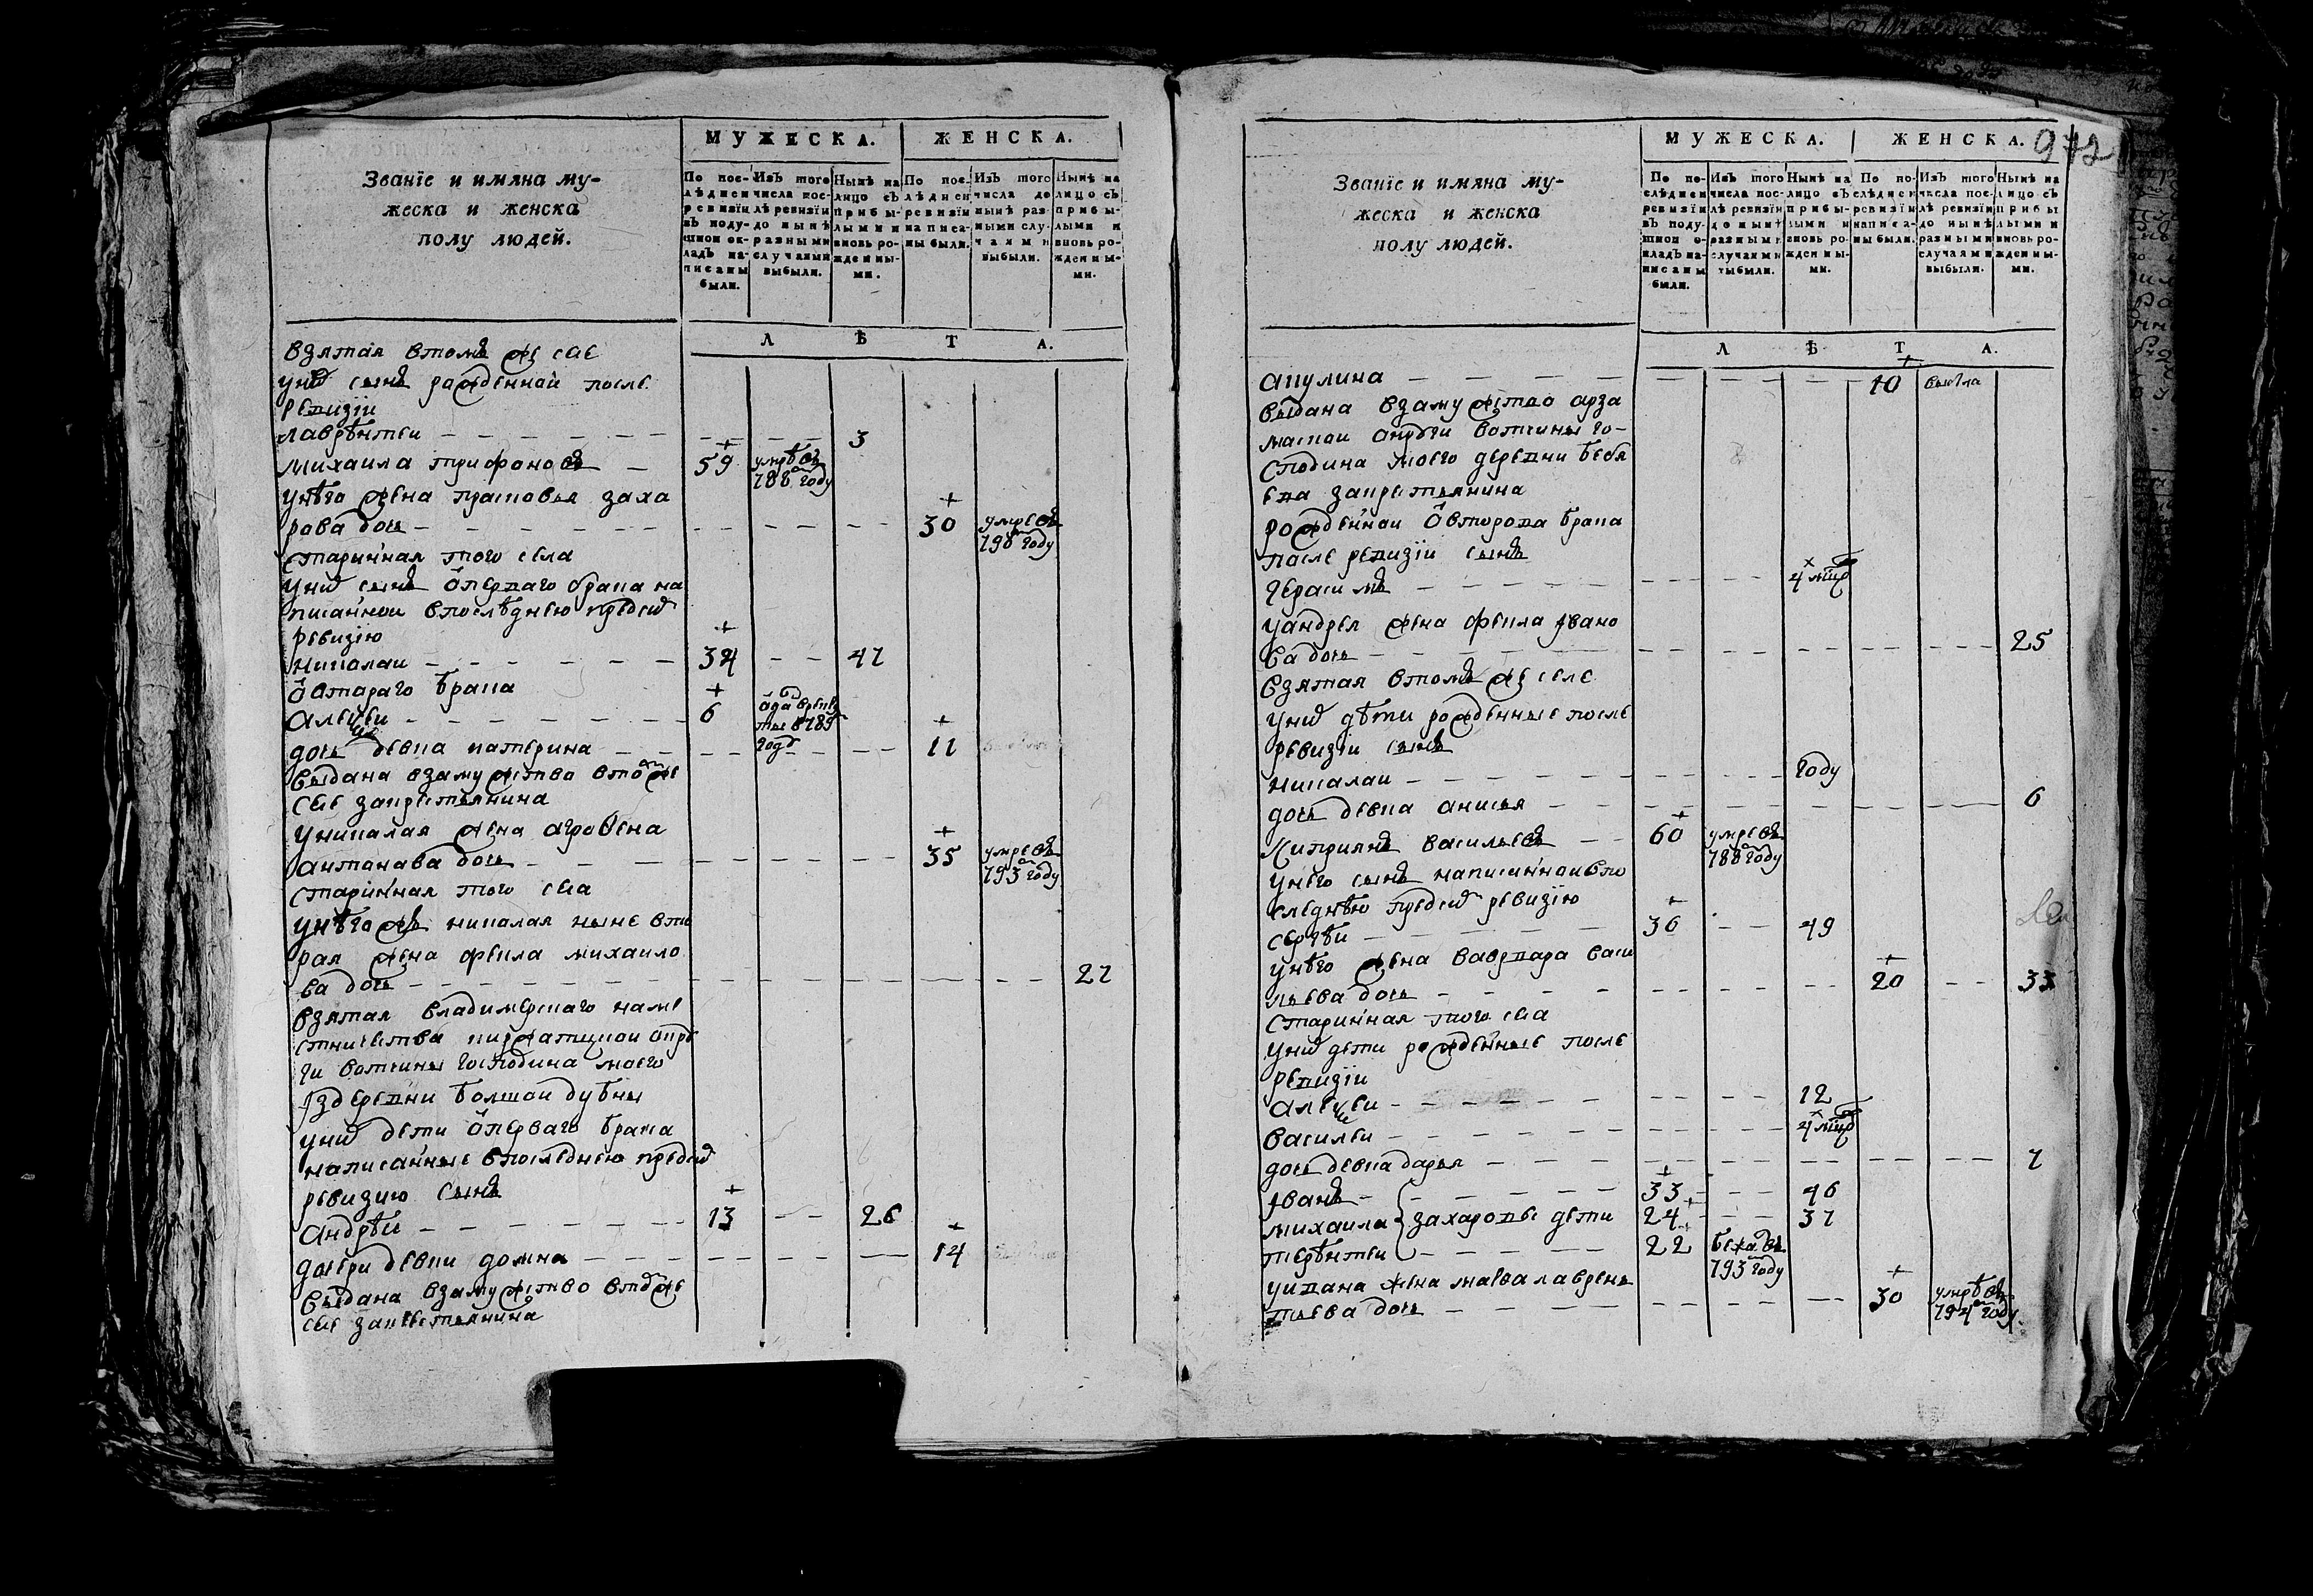 Званїе и имяна му-
жеска и женска
полу людей.
МУЖЕСКА.
ЖЕНСКА.
По пос-
лѣднеи
ревизїи
въ поду-
шной ок-
ладъ на-
писаны
были.
Изъ того
числа пос-
лѣ ревизїи
до нынѣ
разными
случаями
выбыли.
Нынѣ на
лицо съ
прибы-
лыми и
вновь ро-
жденны-
ми.
По пос-
лѣднеи
ревизїи
написа-
ны были.
Изъ того
числа до
нынѣ раз-
ными слу-
чаями
выбыли.
Нынѣ на
лицо съ
прибы-
лыми и
вновь ро-
жденны-
ми.
Л Ѣ Т А.
взятая втомъ же селе
унеи сынъ рожденной после
ревизіи
лаврѣнтеи 3
михаила трифоновъ 59 умрѣ въ 788м году
унѣго жена прасковья заха
рова дочь 30 умре въ 790м году
старинная того села
унеи сынъ ѿперваго брака на
писанной впослѣднею пред сей
ревизію
николаи 34 47
ѿвтораго брака
алеѯеи 6 ѿдан врекруты в 789 году
дочь девка катерина 11
выдана взамужство втом же
селе закрестьянина
униколая жена аграфена
антонава дочь 35 умре въ 793м году
старинная того села
унѣго ж николая ныне вто
рая жена фекла михаило
ва дочь 27
взятая владимерскаго наме
стничества киржатцкои окру
ги вотчины господина моего
из деревни болшои дубны
унеи дети ѿперваго брака
написанные впоследнею пред сей
ревизию сынъ
андрѣи 13 26
дочери девки домна 14
выдана взамужство втом же
селе закрестьянина
972
Званїе и имяна му-
жеска и женска
полу людей.
МУЖЕСКА.
ЖЕНСКА.
По по-
слѣднеи
ревизїи
въ поду-
шной о-
кладъ на-
писаны
были.
Изъ того
числа пос-
лѣ ревизїи
до нынѣ
разными
случаями
выбыли.
Нынѣ на
лицо съ
прибы-
лыми и
вновь ро-
жденны-
ми.
По по-
слѣднеи
ревизїи
написа-
ны были.
Изъ того
числа пос-
лѣ ревизїи
до нынѣ
разными
случаями
выбыли.
Нынѣ на
лицо съ
прибы
лыми и
вновь ро-
жденны-
ми.
Л Ѣ Т А.
акулина 10
выдана взамужство арза
маской округи вотчины го-
сподина моего деревни
закрестьянина
рожденнаи ѿвторова брака
после ревизіи сынъ
герасимъ 4
уандрея жена фекла ивано
ва дочь 25
взятая втомъ же селе
унеи дѣти рожденные после
ревизіи сынъ
николаи году
дочь девка анисья 6
киприянъ васильевъ 60 умре въ 788м году
унего сынъ написанной впо
следнѣю пред сей ревизію
сергѣи 36 49
унѣго жена варвара васи
льева дочь 20 33
старинная того села
унеи дети рожденные после
ревизіи
алеѯеи 12
василеи 4
дочь девка дарья 7
иванъ 33 46
михаила захаровы дети 24 37
терѣнтеи 22 бежа въ 793м году
уивана жена мавра лаврень
тьева дочь 30 умрѣ въ 794м году